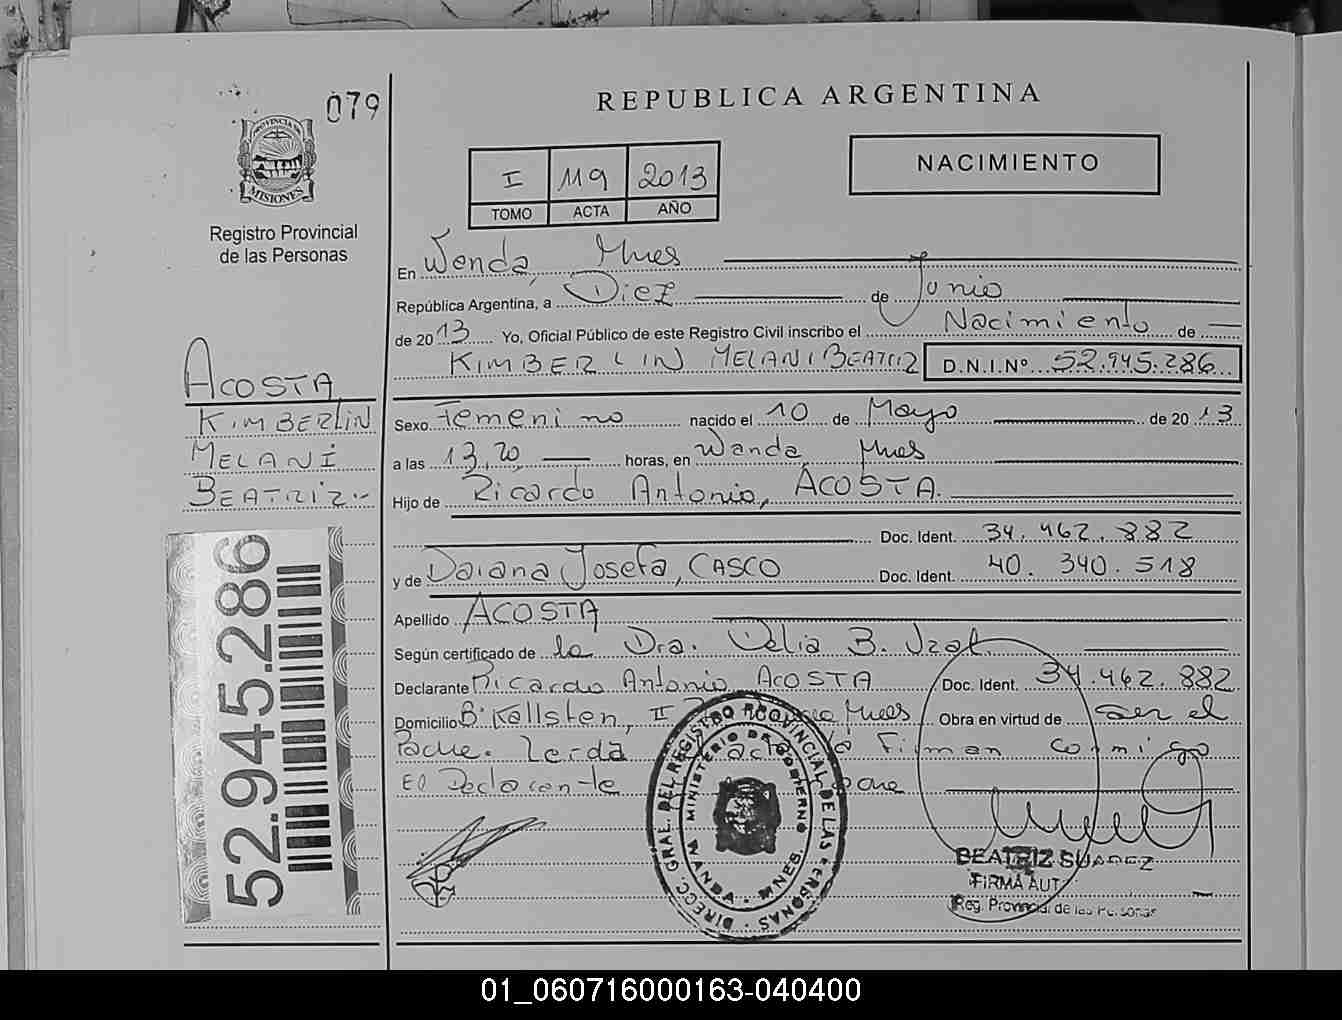 079
REPUBLICA ARGENTINA
PROVINCIA DE
MISIONES
Registro Provincial
de las Personas
I 119 2013
TOMO ACTA AÑO
NACIMIENTO
En Wanda, Mnes
República Argentina, a Diez de Junio
de 2013 Yo, Oficial Público de este Registro Civil inscribo el Nacimiento de
KIMBERLIN MELANI BEATRIZ D.N.I.Nº 52.945.286
ACOSTA
KIMBERLIN
MELANI
BEATRIZ.-
Sexo Femenino nacido el 10 de Mayo de 2013
a las 13,20 horas, en Wanda, Mnes
Hijo de Ricardo Antonio, ACOSTA.
Doc. Ident. 34.462.882
y de Daiana Josefa, CASCO Doc. Ident. 40.340.518
Apellido ACOSTA
Según certificado de la Dra. Delia B.
Declarante Ricardo Antonio ACOSTA Doc. Ident. 34.462.882
Domicilio Bº Kallsten, Mnes Obra en virtud de ser el
Padre. Leida Firman conmigo
El Declarante
52.945.286
DIRECC. GRAL. DEL REGISTRO PROVINCIAL DE LAS PERSONAS
MINISTERIO DE GOBIERNO
WANDA - MNES.
BEATRIZ SUAREZ
FIRMA AUT
Reg. Provincial de las Personas
01_060716000163-040400